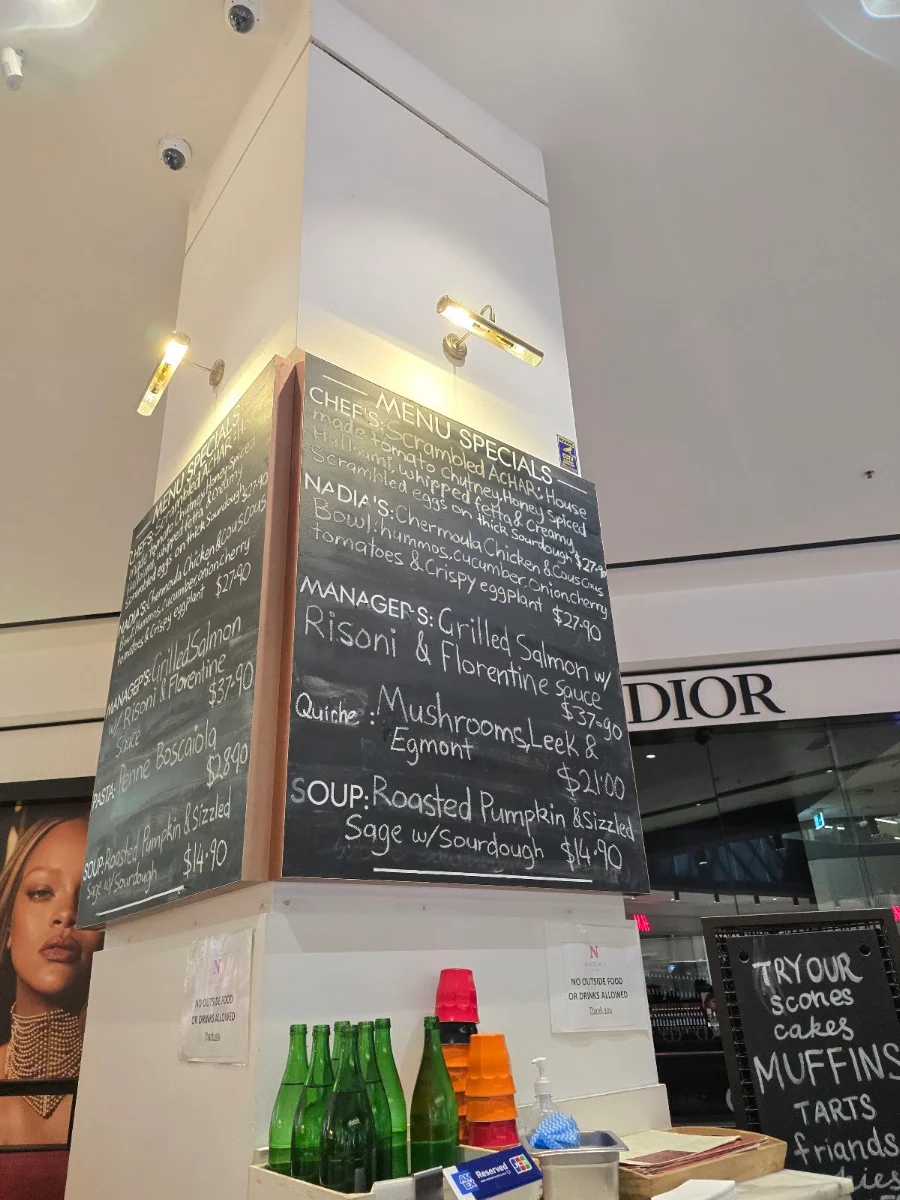 MENU SPECIALS
CHEF'S: Scrambled AcHAR: House
made tomato chutney, Honey Spiced
Halloumi, whipped fetta & Creamy
Scrambled eggs on thick Sourdough $27.90
NADIA'S: Chermoula Chicken & Cous Cous
Bowl: hummos, cucumber, Onion, cherry
tomatoes & Crispy eggplant $27.90
MANAGER'S: Grilled Salmon w/
Risoni & Florentine sauce
$37.90
Quiche: Mushrooms, Leek &
Egmont
$21.00
SOUP: Roasted Pumpkin & Sizzled
Sage w/Sourdough $14.90
MENU SPECIALS
CHEF'S: Scrambled AcHAR:
Scrambled eggs on thick Sourdough $27.90
NADIA'S: Chermoula Chicken & Cous Cous
Bowl: hummos, cucumber, Onion, Cherry
tomatoes & Crispy eggplant $27.90
MANAGER'S: Grilled Salmon
w/ Risoni & Florentine
Sauce $37.90
PASTA: Penne Boscaiola
$28.90
SOUP: Roasted Pumpkin & Sizzled
Sage w/Sourdough $14.90
DIOR
N
NO OUTSIDE FOOD
OR DRINKS ALLOWED
Thank you
N
NADIA'S
NO OUTSIDE FOOD
OR DRINKS ALLOWED
Thank you
TRY OUR
scones
cakes
MUFFINS
TARTS
friands
AMEX
Reserved
JCB